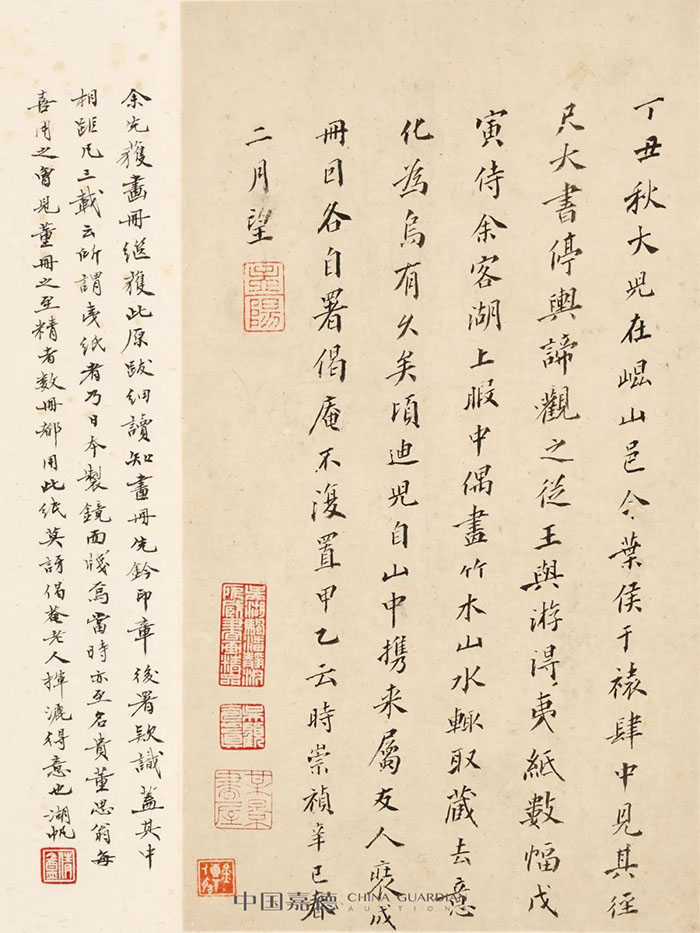 丁丑秋大兒在崐山邑令葉侯于裱肆中見其徑
尺大書停輿諦觀之從王與游得夷紙數幅戊
寅侍余客湖上暇中偶畫竹木山水輙取藏去意
化為烏有久矣頃迪兒自山中攜来屬友人裒成
冊回各自署偈庵不復置甲乙云時崇禎辛巳春
二月望
余先獲畫冊繼獲此原跋細讀知畫冊先鈐印章後署欵識蓋其中
相距凡三載云所謂夷紙者乃日本製鏡面牋為當時亦至名貴董思翁每
喜用之曾見董冊之至精者數冊都用此紙莫訝偈菴老人揮灑得意也湖帆
孟陽
中国嘉德 CHINA GUARDIAN
AUCTIONS